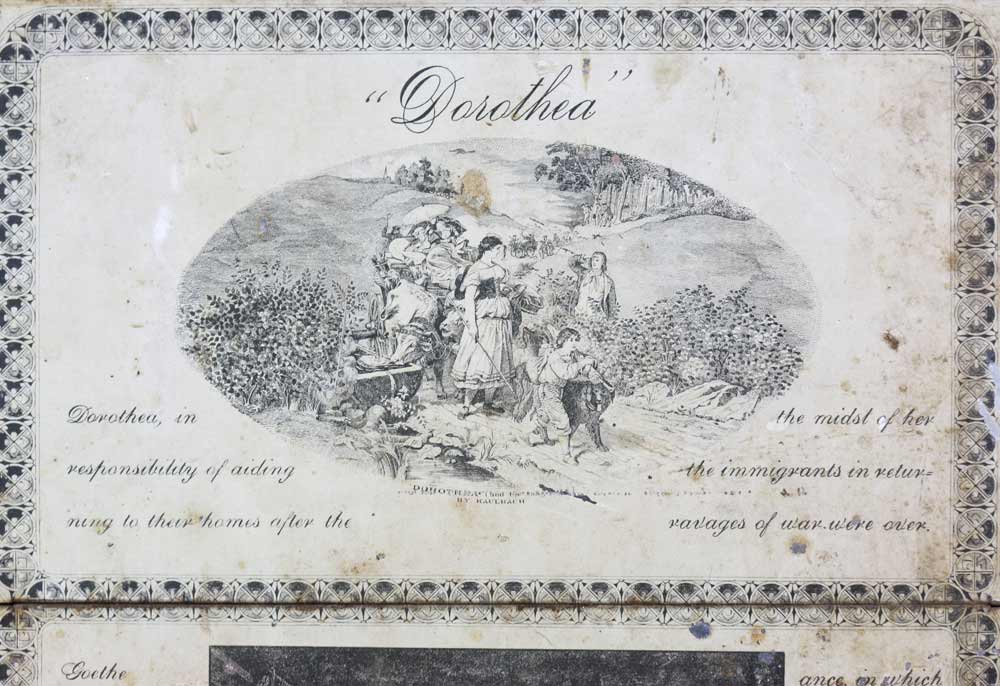 "Dorothea"
Dorothea, in the midst of her
responsibility of aiding the immigrants in retur=
ning to their homes after the ravages of war were over.
DOROTHEA
BY KAULBACH
Goethe ance, in which